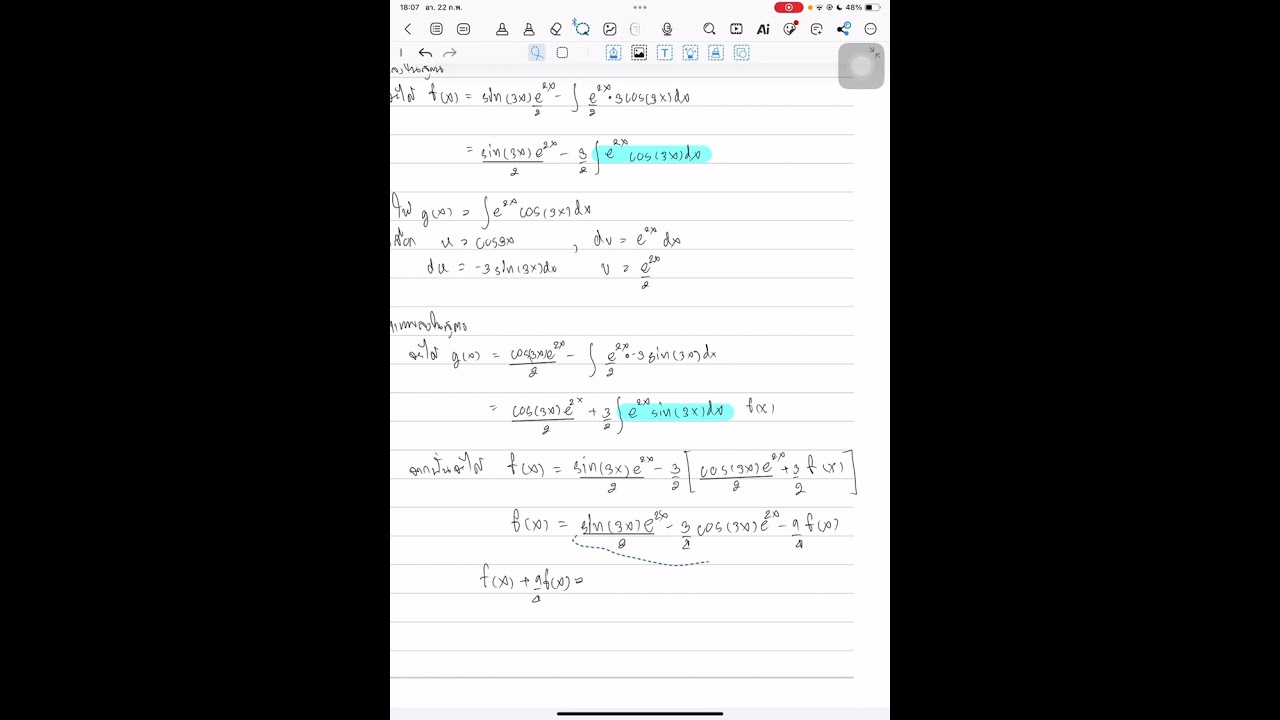 18:07 อา. 22 ก.พ. 48%
Ai
T
จะได้ f(x) = sin(3x)e^2x/2 - ∫ e^2x/2 · 3cos(3x)dx
= sin(3x)e^2x/2 - 3/2 ∫ e^2x cos(3x)dx
ให้ g(x) = ∫ e^2x cos(3x)dx
u = cos3x , dv = e^2x dx
du = -3sin(3x)dx v = e^2x/2
จะได้ g(x) = cos(3x)e^2x/2 - ∫ e^2x/2 · -3sin(3x)dx
= cos(3x)e^2x/2 + 3/2 ∫ e^2x sin(3x)dx f(x)
จะได้ f(x) = sin(3x)e^2x/2 - 3/2 [ cos(3x)e^2x/2 + 3/2 f(x) ]
f(x) = sin(3x)e^2x/2 - 3/4 cos(3x)e^2x - 9/4 f(x)
f(x) + 9/4 f(x) =